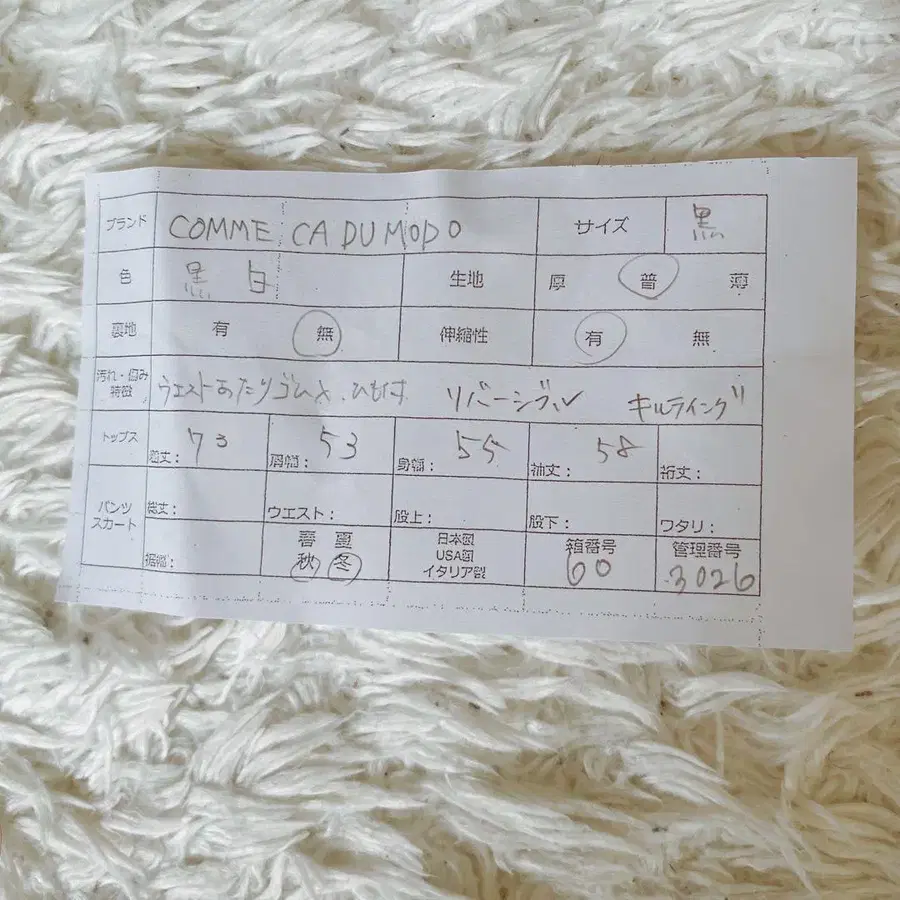 ブランド COMME CA DU MODO サイズ 黒
色 黒 白 生地 厚 普 薄
裏地 有 無 伸縮性 有 無
汚れ・傷み 特徴 ウエストあたりゴム リバーシブル キルティング
トップス 着丈： 73 肩幅： 53 身幅： 55 袖丈： 58 裄丈：
パンツ スカート 総丈： ウエスト： 股上： 股下： ワタリ：
裾幅： 春 夏 秋 冬 日本製 USA製 イタリア製 箱番号 60 管理番号 3026